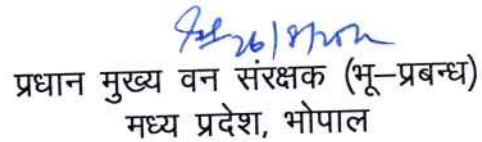 26/8/2021
प्रधान मुख्य वन संरक्षक (भू–प्रबन्ध)
मध्य प्रदेश, भोपाल